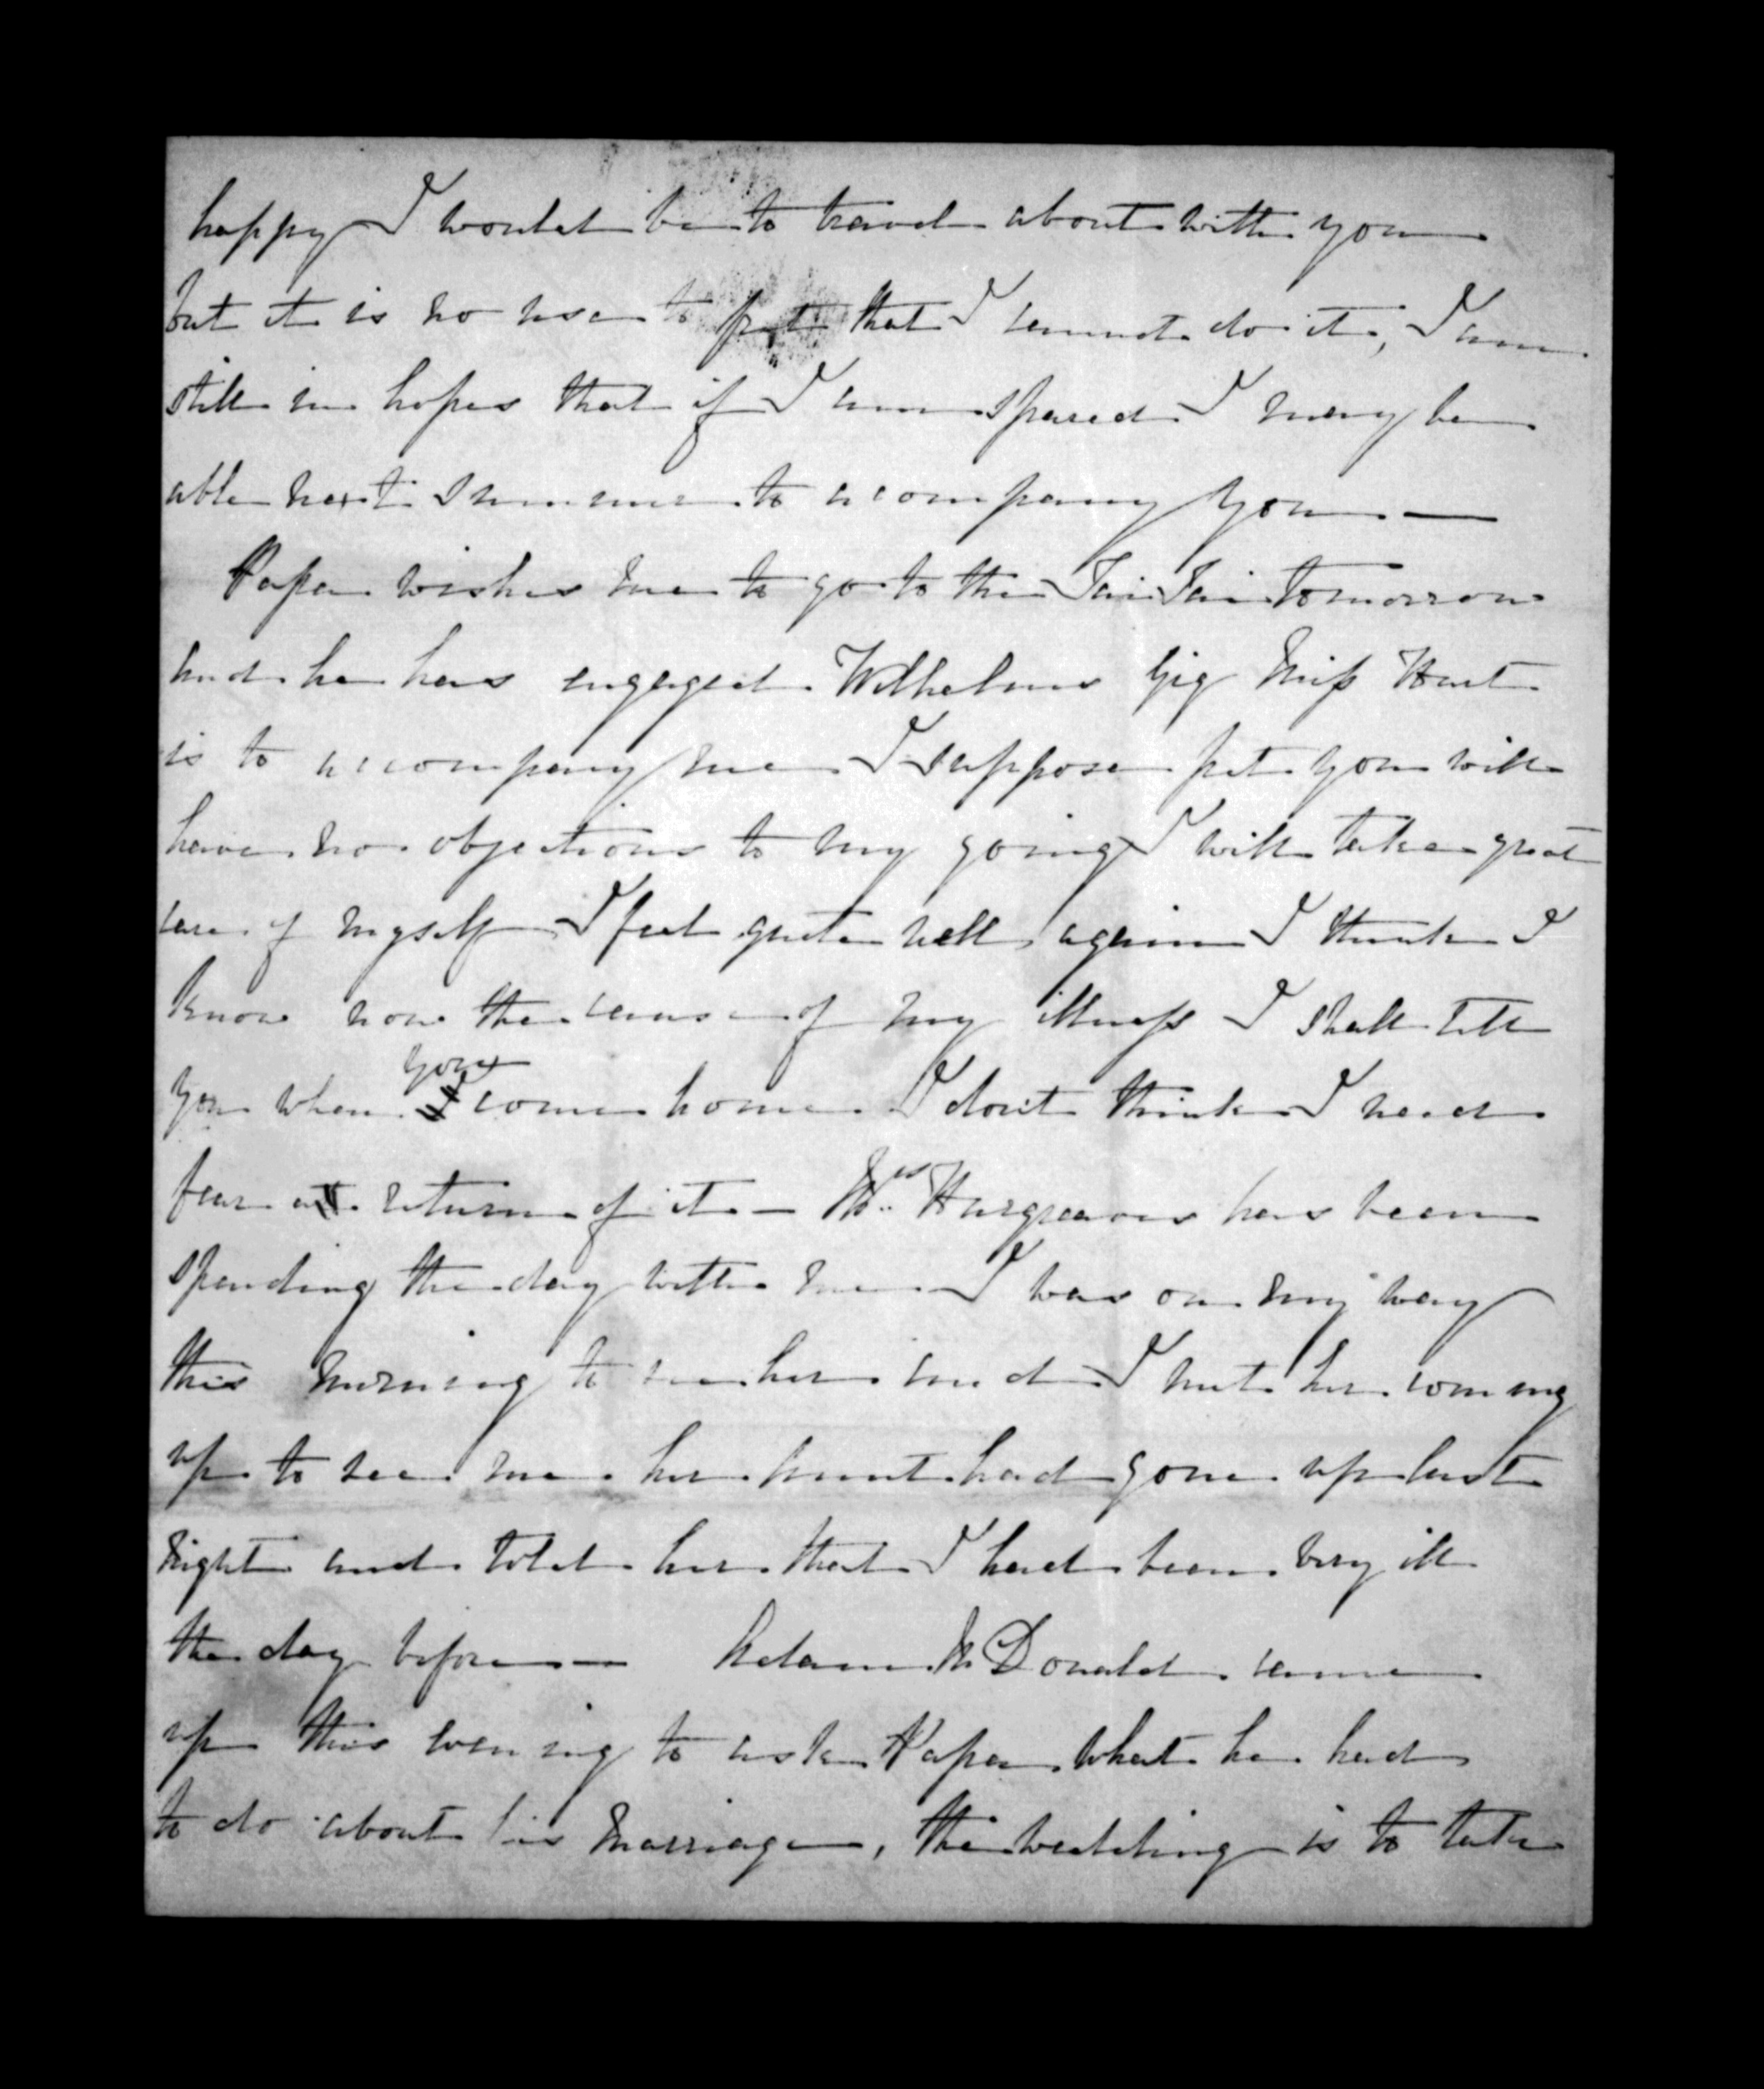 happy I would be to travel about with you
but it is no use to fret that I cannot do it, I am
still in hopes that if I am spared I may be
able next summer to acompany you —
Papa wishes me to go to the Tai Tai tomorrow
and he has engaged Wilhelms Gig Miss Hunt
is to accompany me I suppose pet you will
have no objections to my going I will take great
care of myself I feel quite well again I think I
know now the cause of my illness I shall tell
you when you come home I dont think I need
fear a return of it — Mrs Hargreaves has been
spending the day with me I was on my way
this morning to see her and I met her coming
up to see me her Aunt had gone up last
night and told her that I had been very ill
the day before — Adam McDonald came
up this evening to ask Papa what he had
to do about his marriage, the wedding is to take